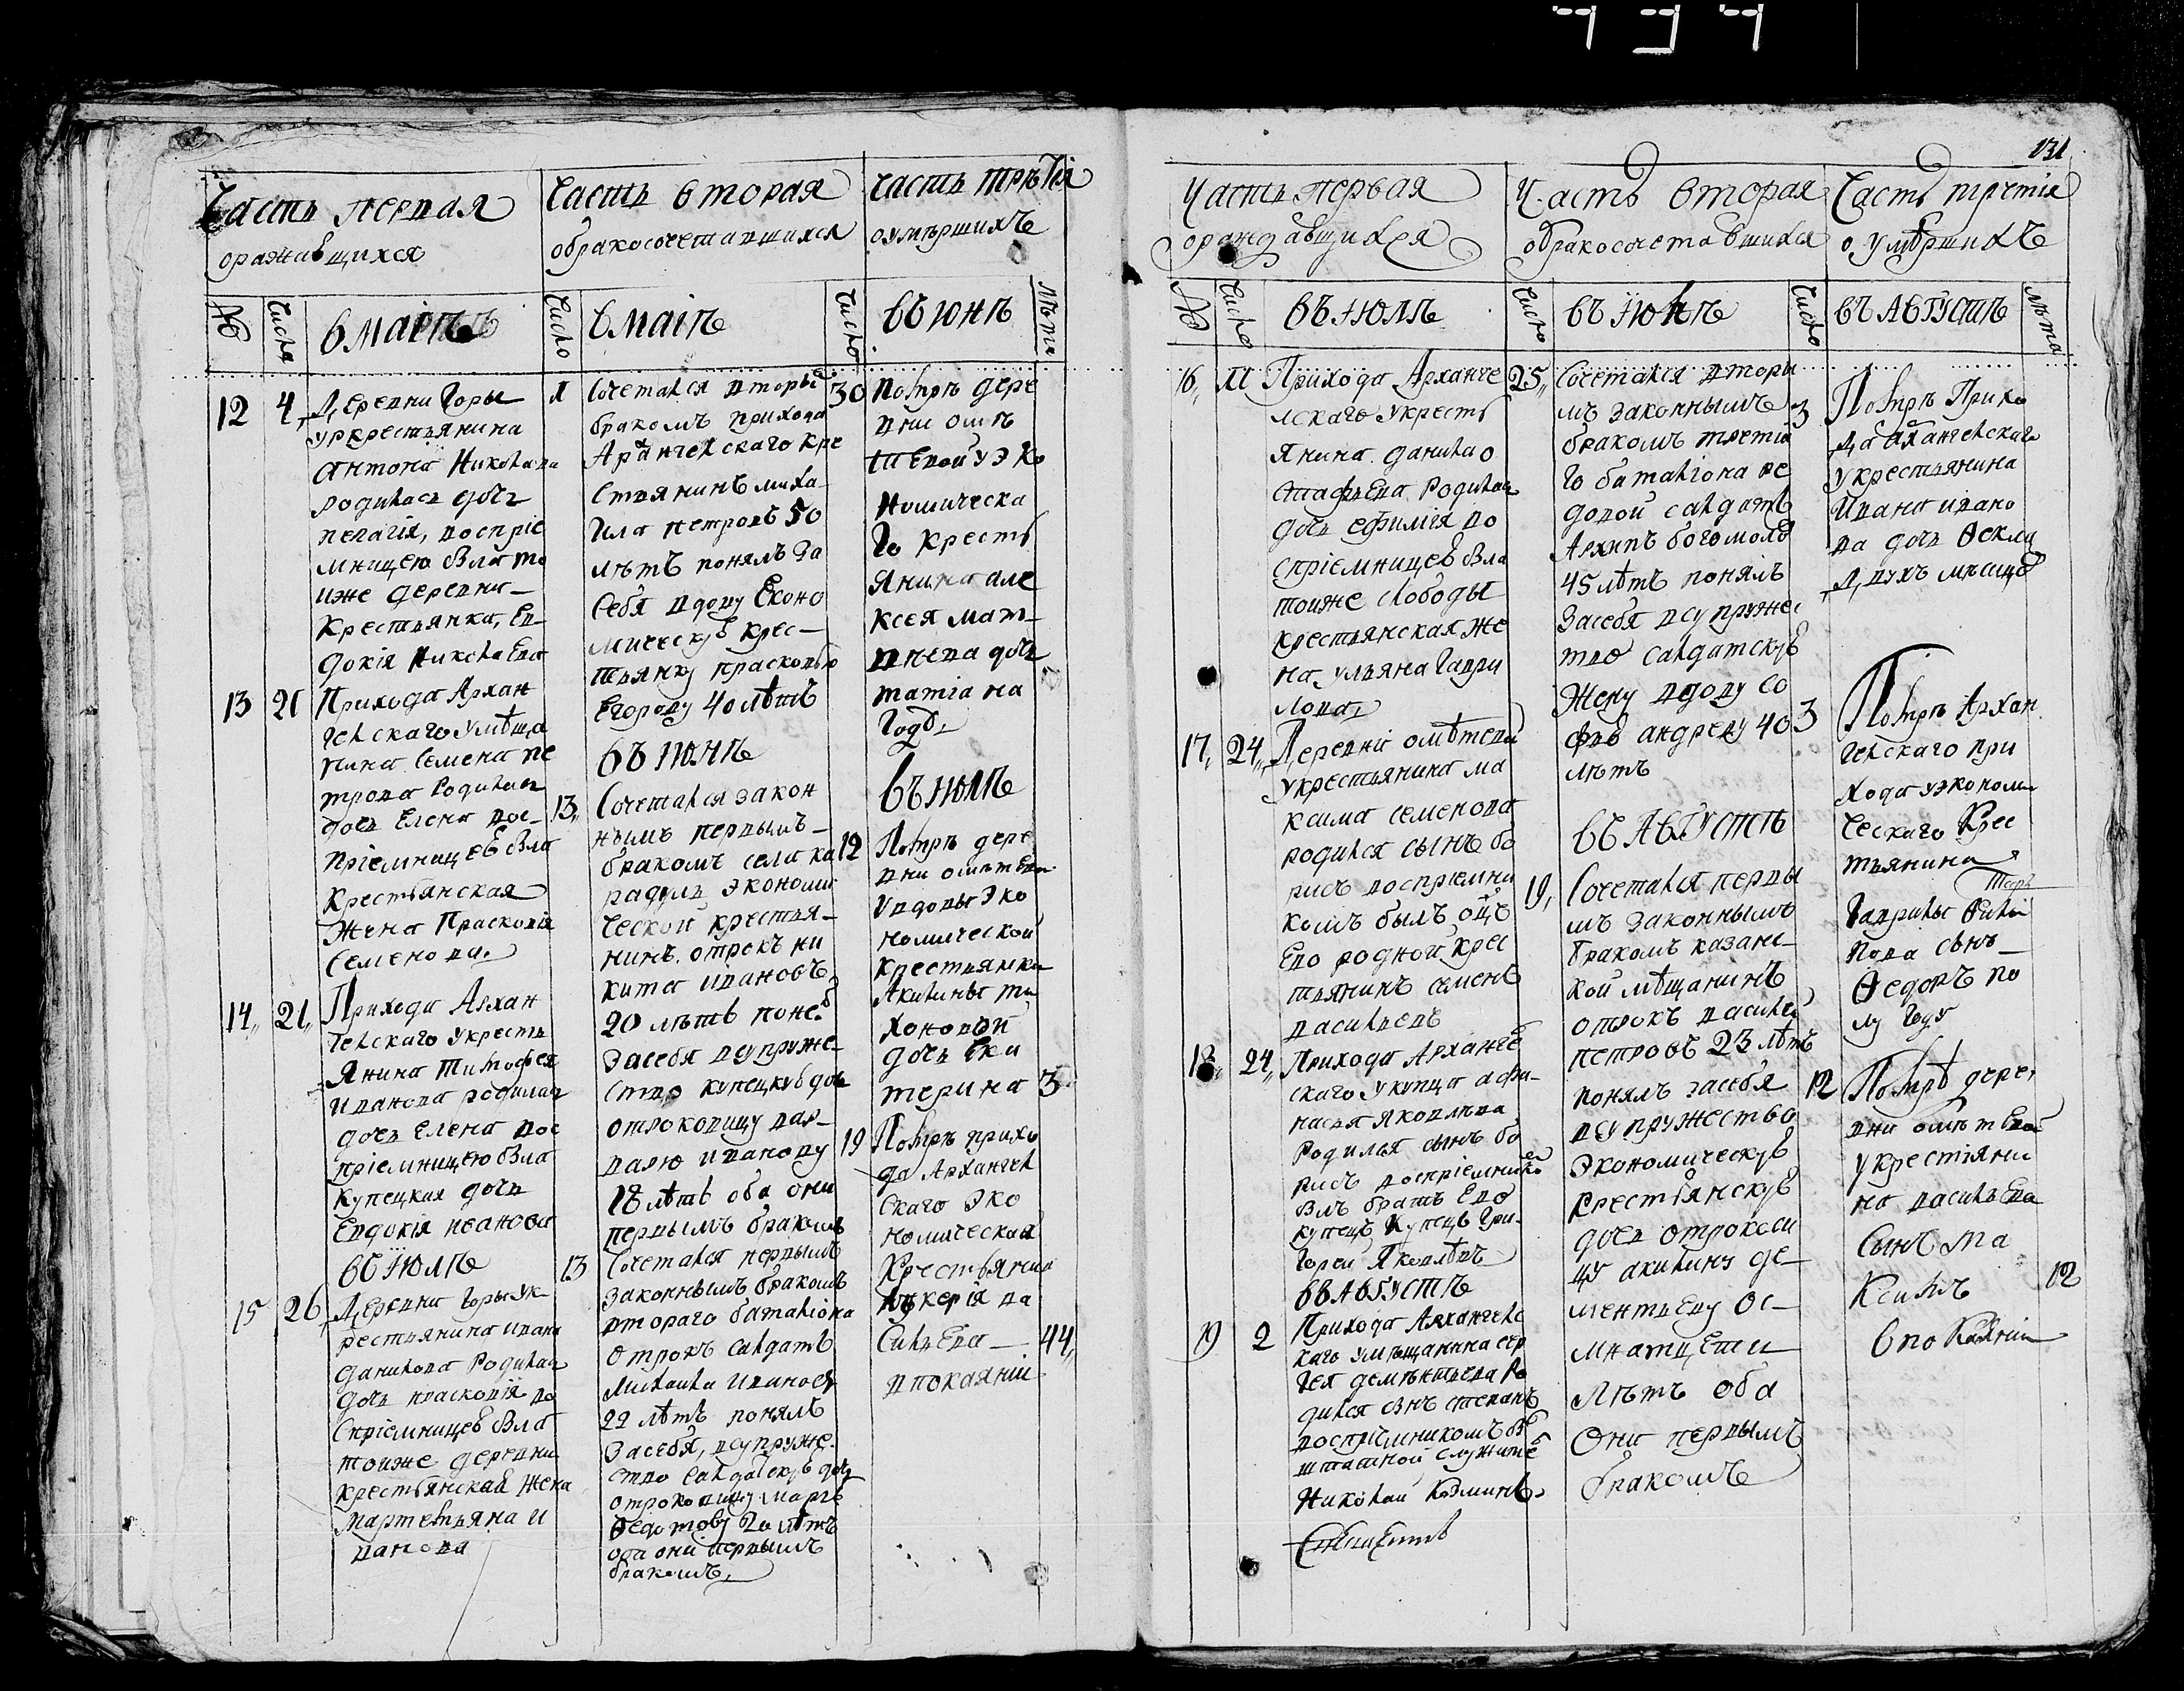 131
Часть первая
оражавщихся
№
Число
в маіѣ
12 4
Деревни Горы
укрестьянина
антона Николаева
родилась дочь
пелагія, воспріе
мницею была то
иже деревни
Крестьянка, Ев
докія Николаева
13 21
Прихода Архан
гелскаго умѣща
нина Семена пе
трова Родилась
дочь Елена вос
пріемницею была
Крестьянская
Жена Прасковія
Семенова.
14 21
Прихода Архан
гелскаго укресть
Янина Тимофея
Иванова родилась
дочь Елена вос
пріемницею была
Купецкая дочь
Евдокія иванова
въ июлѣ
15 26
Деревни горы ук
рестьянина ивана
данилова Родилась
дочь прасковія во
спріемницею была
тоиже деревни
крестьянская Жена
Мартемьяна И
ванова
Часть вторая
обракосочетавшихся
Число
в маіѣ
Сочетался вторы
бракомъ прихода
Архангелскаго кре
стьянинъ миха
ила петровъ 50
лѣтъ понялъ за
себя вдову Еконо
мическую крес
тьянку прасковью
Егорову 40 лѣтъ
въ июнѣ
13
Сочетался закон
нымъ первымъ
бракомъ села ка
радулъ экономи
ческой крестья
нинъ отрокъ ни
кита ивановъ
20 лѣтъ поне
засебя всупруже
ство купецкую дочь
отроковицу вар
варю иванову
18 лѣтъ оба они
первымъ бракомъ
13
Сочетался первымъ
законнымъ бракомъ
втораго баталіона
отрокъ салдатъ
михаила иванов
22 лѣтъ понялъ
засебя, всупруже
ство салдацкую дочь
отроковицу марѳ
Ѳедотову 20 лѣтъ
оба они первымъ
бракомъ,
Часть третія
оумершихъ
Число
въ юнѣ
лѣта
30
Помрѣ дере
вни омѣ
тевой у эко
номическа
го кресть
янина але
ксея мат
внева дочь
татіана
Годъ
въ июлѣ
12
Помрѣ дере
вни омѣтевы
увдовы эко
номической
крестьянки
Акилины ти
хоновой
дочь Ека
терина 3
19
Помрѣ прихо
да Архангел
скаго эко
номическая
Крестьянка
лукерія ва
сильева 44
впокаяніи
Часть первая
ораждавщихся
№
Число
въ июлѣ
16
Прихода Арханге
лскаго укресть
янина данила о
стафьева Родилась
дочь ефимія во
спріемницею бла
тоиже слободы
крестьянская же
на ульяна Гаври
лова,
17 24
Деревни омѣтевы
укрестьянина ма
ксима семенова
родился сынъ бо
рисъ воспріемни
комъ былъ оцъ
Ево родной крес
тьянинъ семенъ
васильевъ
18 24
Прихода Арханге
скаго укупца афа
насья яковлева
Родился сынъ бо
рисъ воспріемнико
былъ братъ Ево
купецъ Купецъ Гри
горей Яковлевъ
въ Августѣ
19 2
Прихода Архангелс
каго умѣщанина сер
гея дементьева Ро
дился сынъ степанъ
воспріемникомъ бы
штатной служите
Николаи Козминъ.
Часть вторая
обракосочетавшихся
Число
въ июлѣ
25
Сочетался вторы
мъ законнымъ
бракомъ третія
го баталіона ре
довой салдатъ
Архипъ богомоло
45 лѣтъ понялъ
засебя всупруже
тво салдатскую
Жену вдову со
фью андреву 40
лѣтъ
въ Августѣ
19
Сочетался первы
мъ законнымъ
бракомъ казанс
кой мѣщанинъ
отрокъ василей
петровъ 23 лѣтъ
понялъ засебя
всупружество
Экономическую
крестьянскую
дочь отрокови
цу акилину де
ментьеву ос
мнатцети
лѣтъ оба
Они первымъ
бракомъ
Часть третія
оумершихъ
Число
въ Августѣ
лѣта
3
Помрѣ Прихо
да Архангелскаго
укрестьянина
Ивана ивано
ва дочь Ѳекла
Двухъ мѣсяце
3
Помрѣ Архан
гелскаго при
хода уэкономи
ческаго Крес
тьянина
Гаврилы Фили
пова сынъ
Ѳедоръ по
лу году
12
Помрѣ дере
вни омѣтевой
укрестьяни
на васильева
Сынъ ма
ксимъ 12
впокаяніи